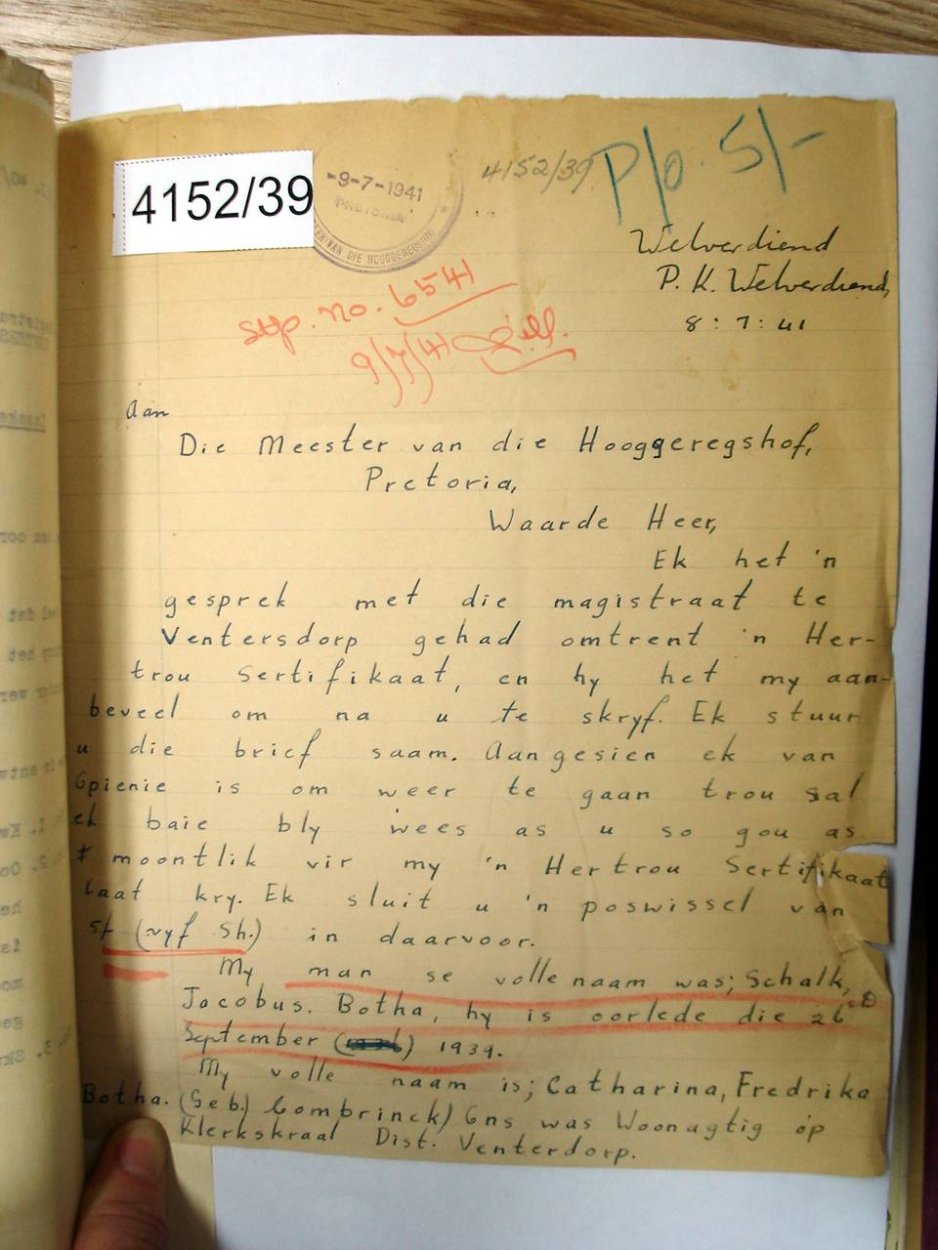 4152/39
-9-7-1941
PRETORIA
VAN DIE HOOGGEREGSHOF
4152/39
P/o. 5/-
Welverdiend
P. K. Welverdiend,
8 : 7 : 41
Stp. no. 6541
9/7/41
Aan
Die Meester van die Hooggeregshof,
Pretoria,
Waarde Heer,
Ek het 'n
gesprek met die magistraat te
Ventersdorp gehad omtrent 'n Her-
trou Sertifikaat, en hy het my aan-
beveel om na u te skryf. Ek stuur
u die brief saam. Aangesien ek van
Opienie is om weer te gaan trou sal
ek baie bly wees as u so gou as
moontlik vir my 'n Hertrou Sertifikaat
laat kry. Ek sluit u 'n poswissel van
5/- (vyf Sh.) in daarvoor.
My man se volle naam was; Schalk,
Jacobus. Botha, hy is oorlede die 26ste
September () 1939.
My volle naam is; Catharina, Fredrika
Botha. (Geb.) Combrinck) Ons was Woonagtig op
Klerkskraal Dist. Venterdorp.